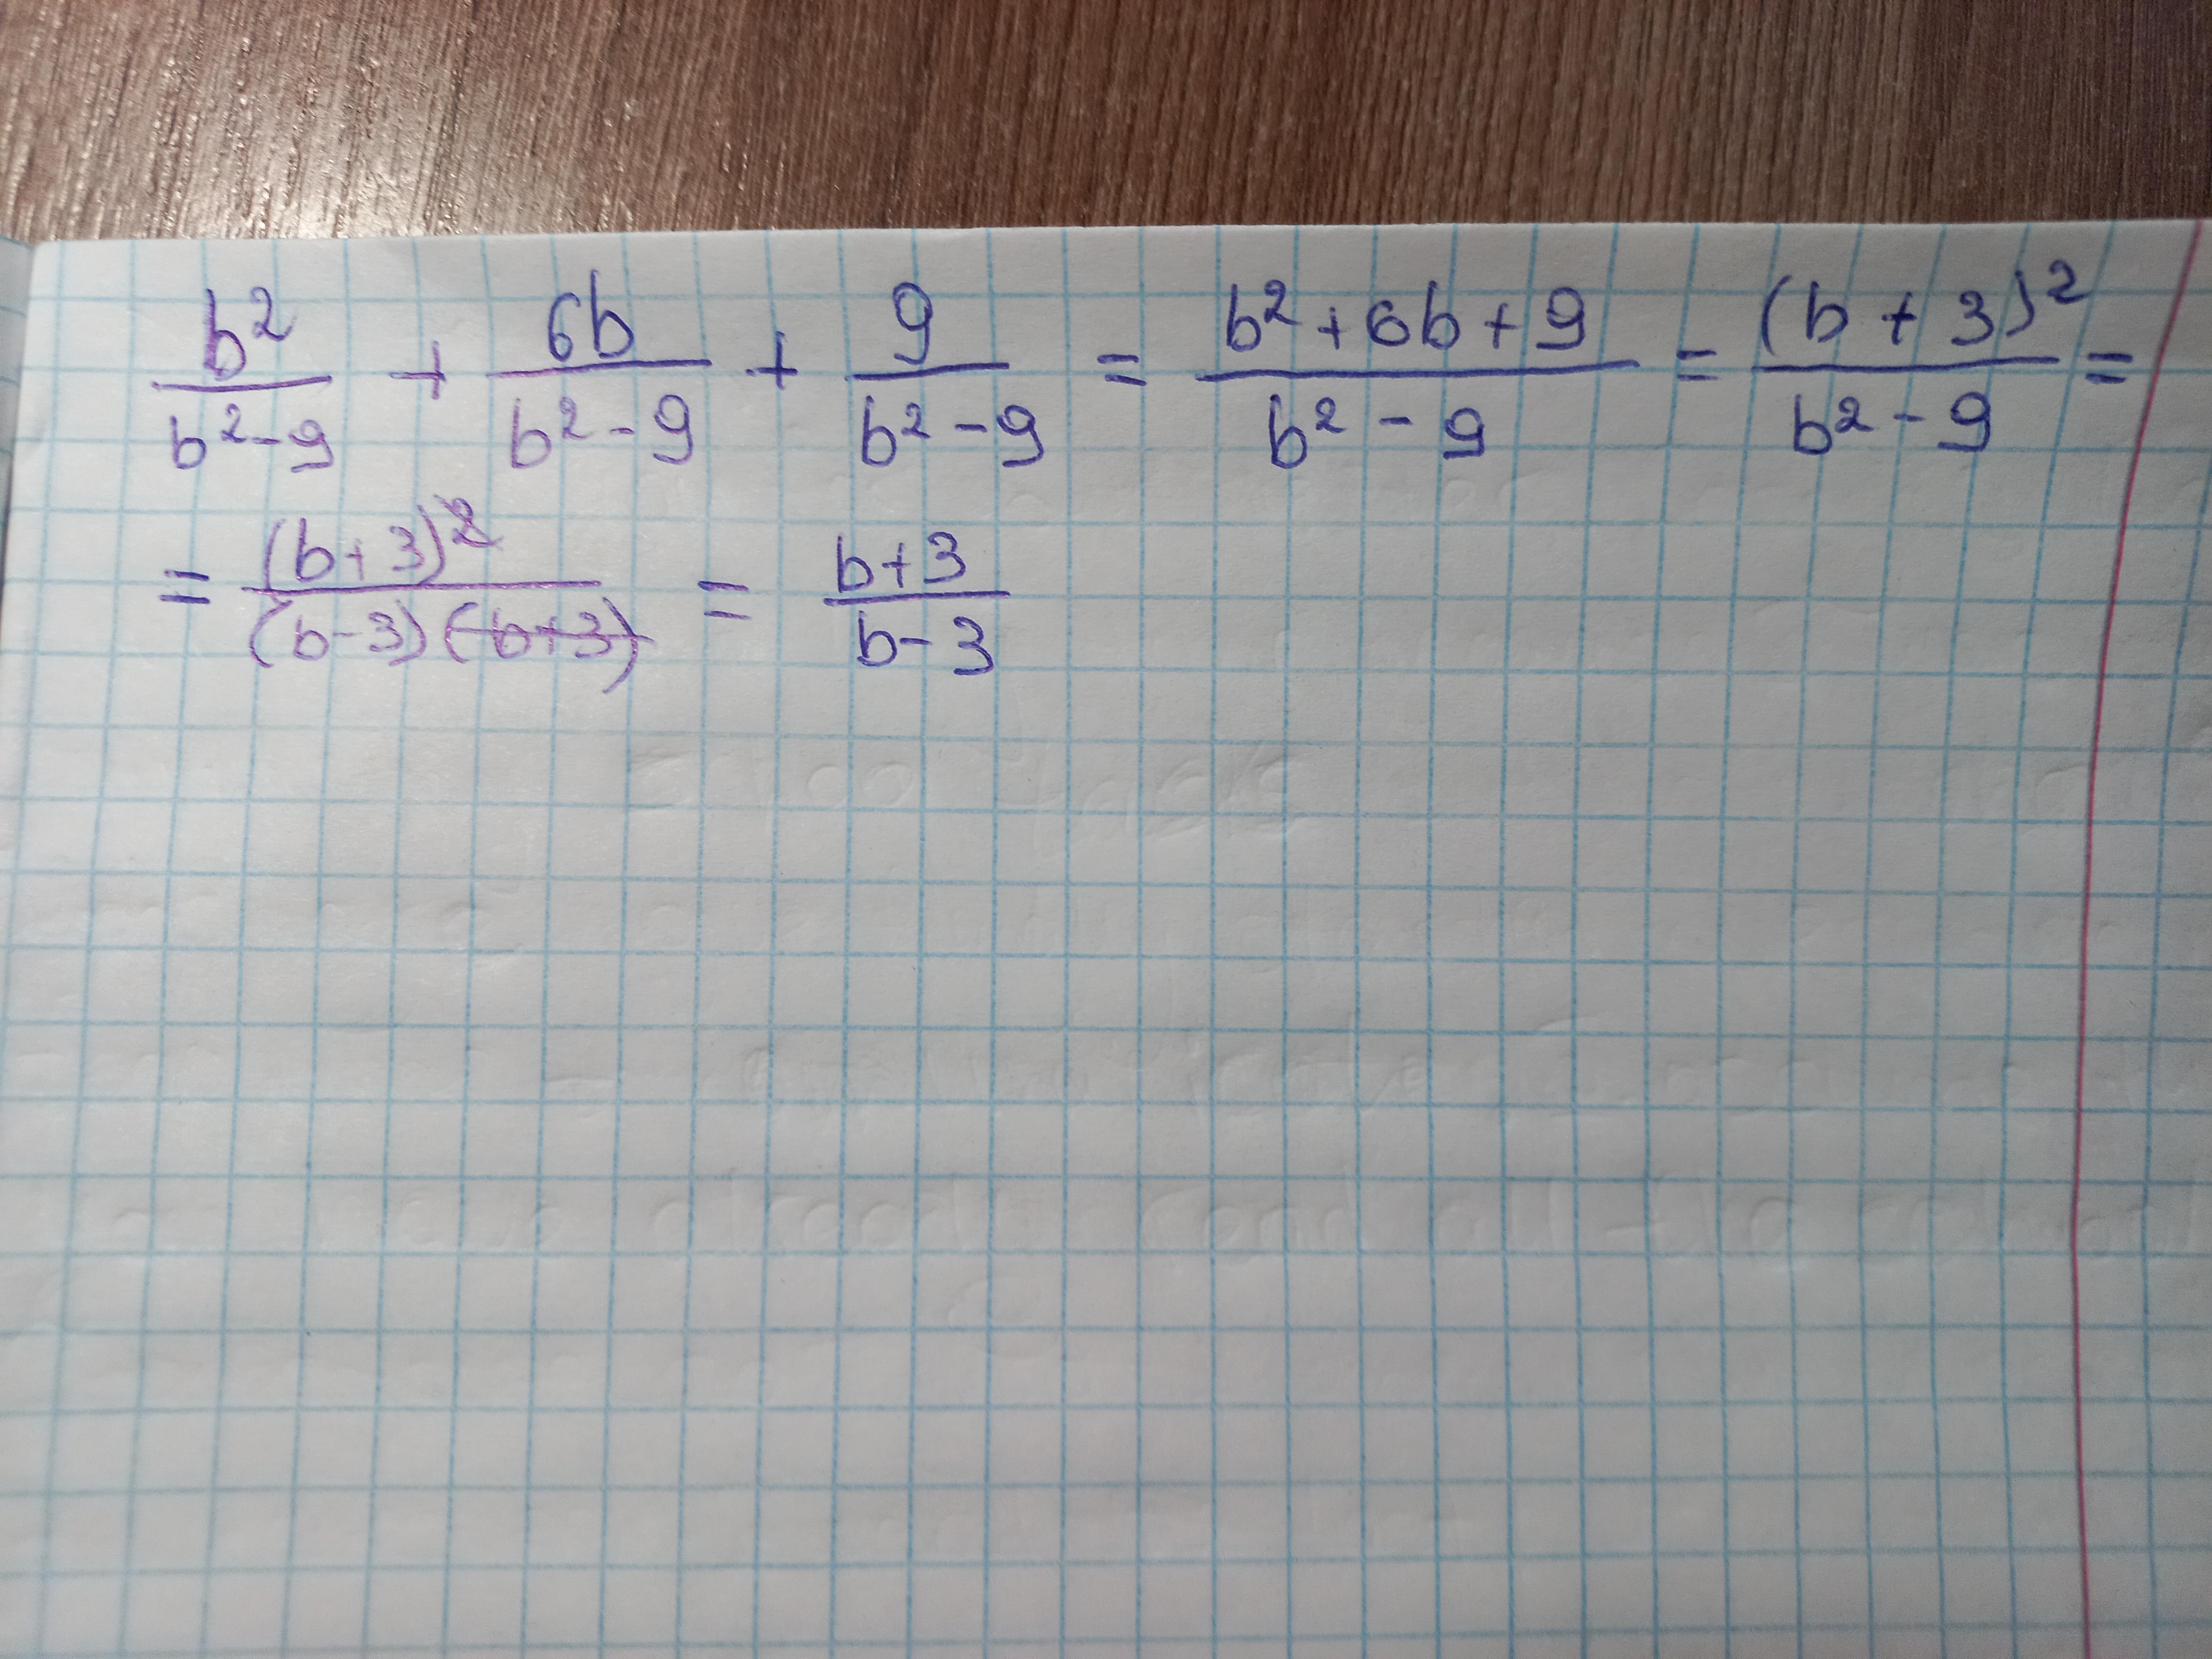 b²/(b²-9) + 6b/(b²-9) + 9/(b²-9) = (b²+6b+9)/(b²-9) = (b+3)²/(b²-9) =
= (b+3)²/((b-3)(b+3)) = (b+3)/(b-3)